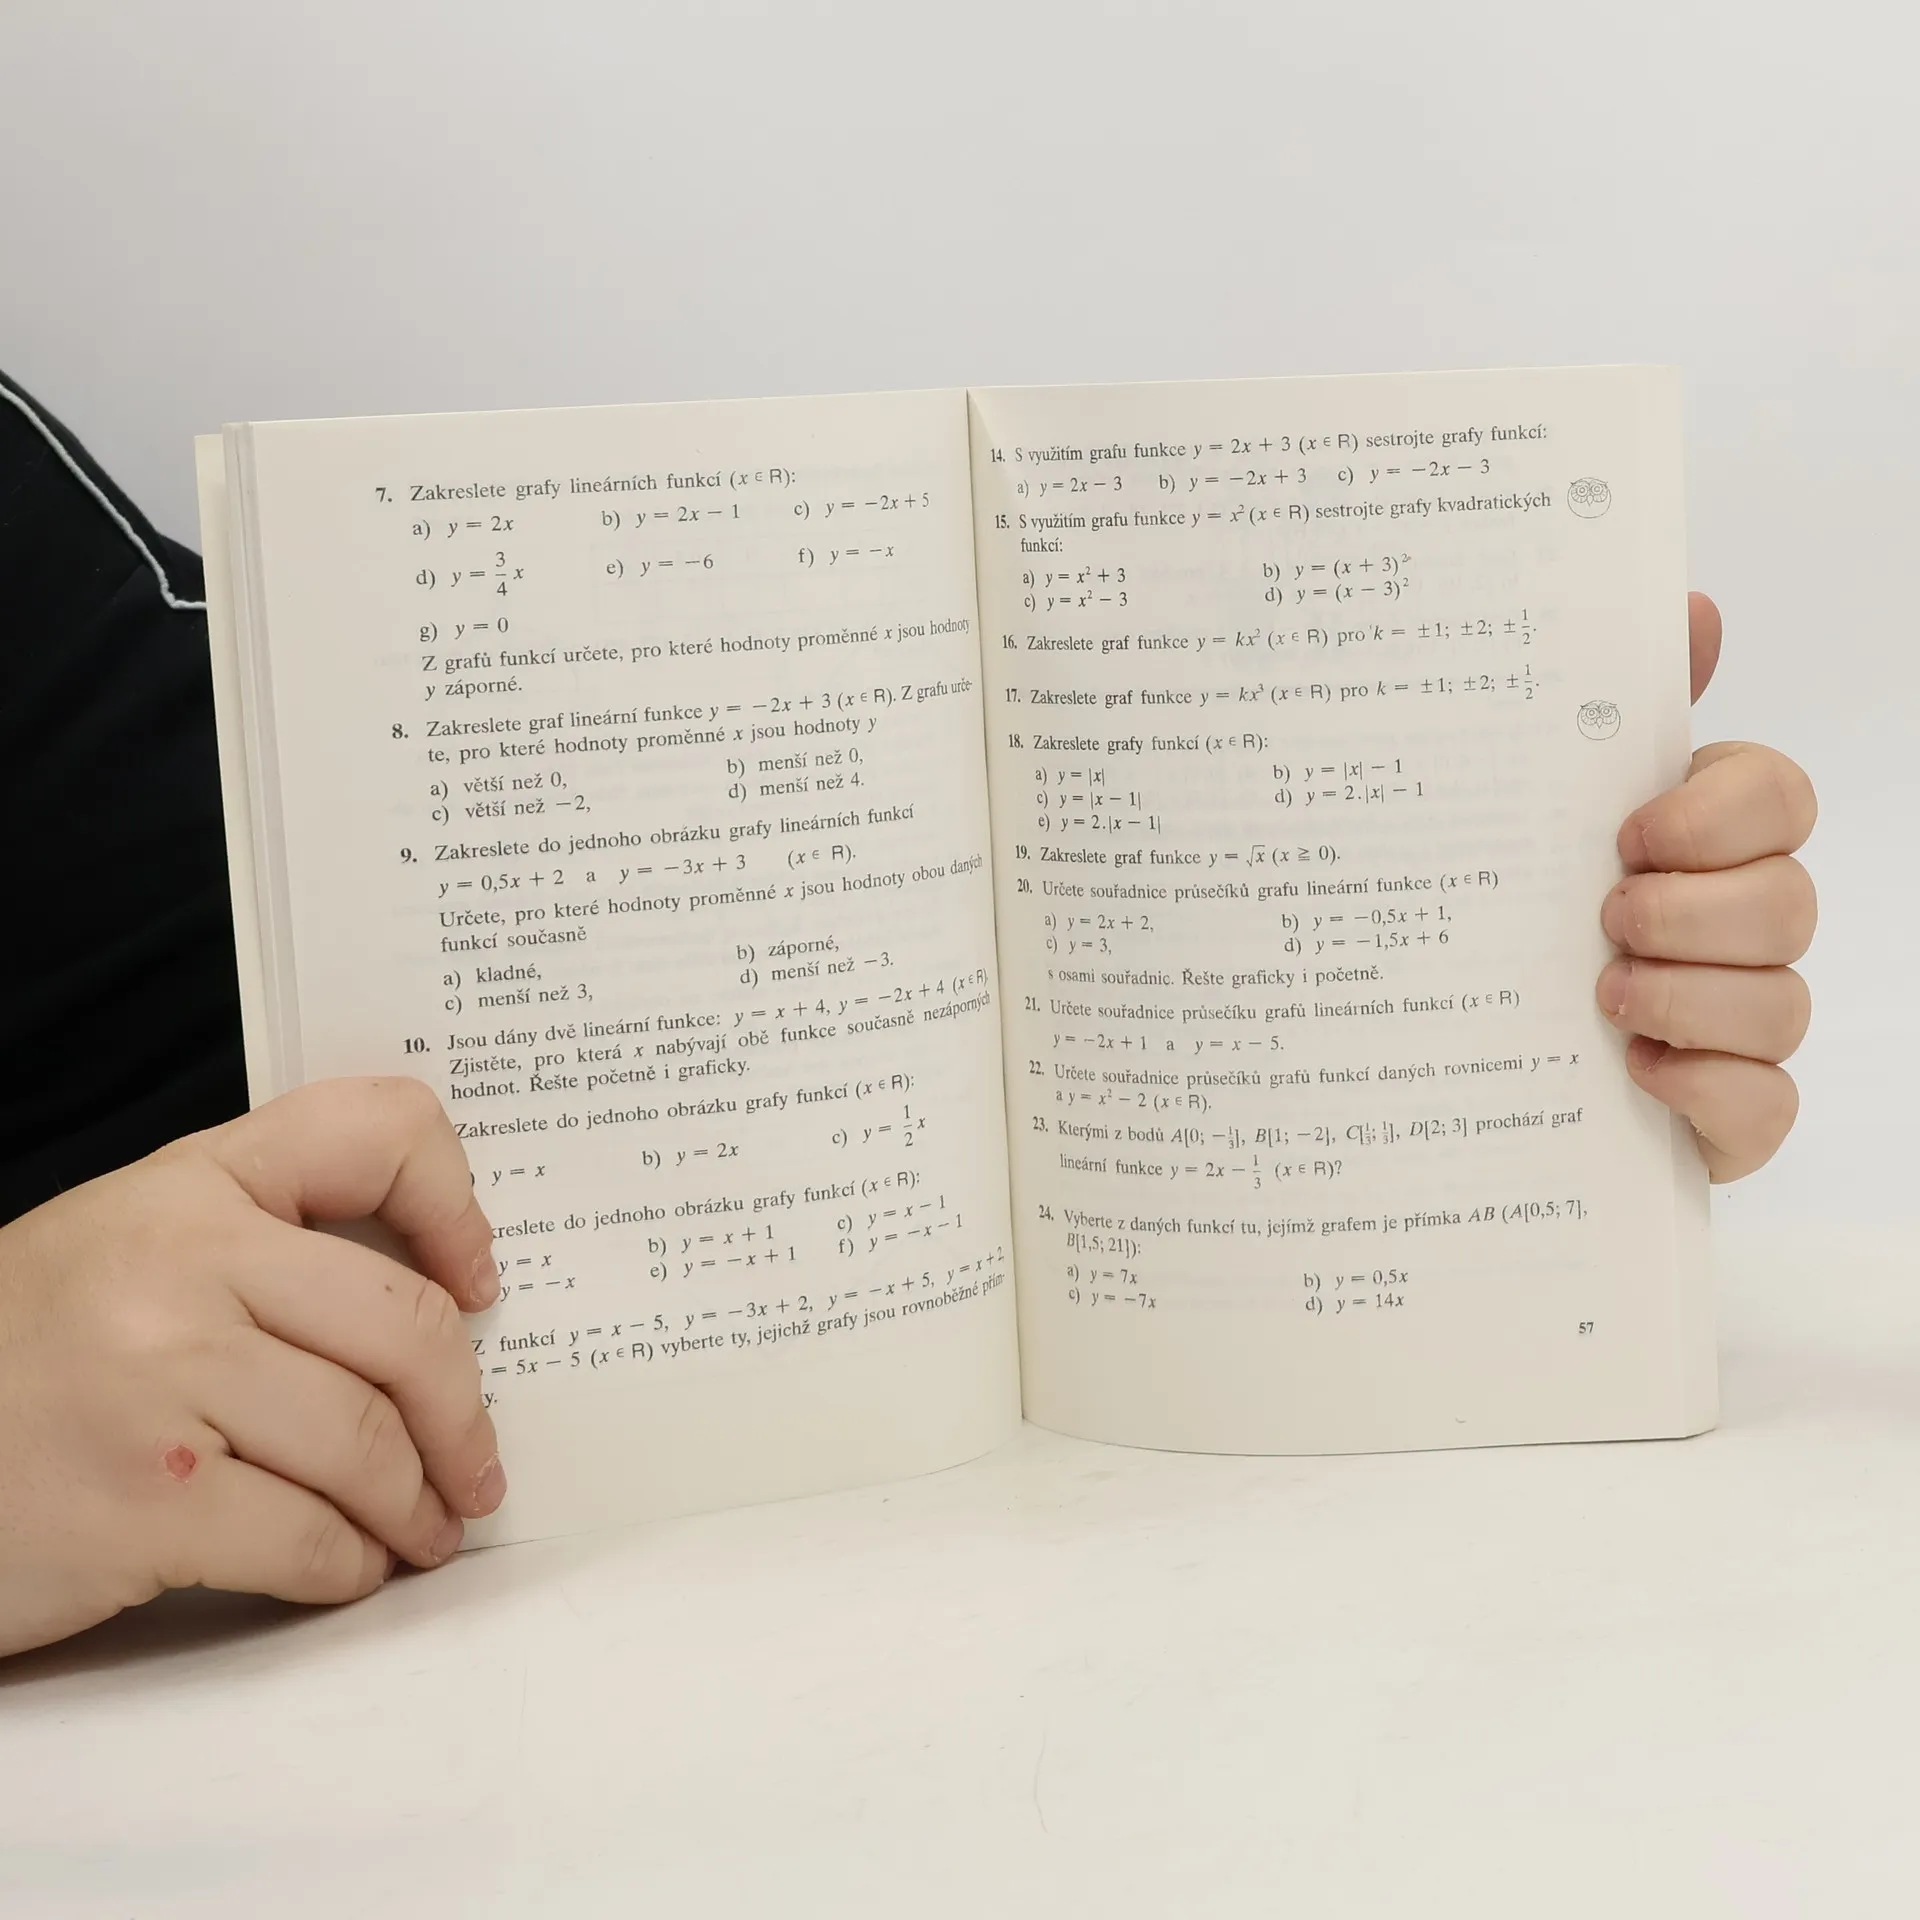 7. Zakreslete grafy lineárních funkcí (x ∈ R):
a) y = 2x b) y = 2x − 1 c) y = −2x + 5
d) y = 3/4 x e) y = −6 f) y = −x
g) y = 0
Z grafů funkcí určete, pro které hodnoty proměnné x jsou hodnoty
y záporné.
8. Zakreslete graf lineární funkce y = −2x + 3 (x ∈ R). Z grafu urče-
te, pro které hodnoty proměnné x jsou hodnoty y
a) větší než 0, b) menší než 0,
c) větší než −2, d) menší než 4.
9. Zakreslete do jednoho obrázku grafy lineárních funkcí
y = 0,5x + 2 a y = −3x + 3 (x ∈ R).
Určete, pro které hodnoty proměnné x jsou hodnoty obou daných
funkcí současně
a) kladné, b) záporné,
c) menší než 3, d) menší než −3.
10. Jsou dány dvě lineární funkce: y = x + 4, y = −2x + 4 (x ∈ R).
Zjistěte, pro která x nabývají obě funkce současně nezáporných
hodnot. Řešte početně i graficky.
Zakreslete do jednoho obrázku grafy funkcí (x ∈ R):
) y = x b) y = 2x c) y = 1/2 x
kreslete do jednoho obrázku grafy funkcí (x ∈ R):
y = x b) y = x + 1 c) y = x − 1
y = −x e) y = −x + 1 f) y = −x − 1
Z funkcí y = x − 5, y = −3x + 2, y = −x + 5, y = x + 2,
= 5x − 5 (x ∈ R) vyberte ty, jejichž grafy jsou rovnoběžné přím-
y.
14. S využitím grafu funkce y = 2x + 3 (x ∈ R) sestrojte grafy funkcí:
a) y = 2x − 3 b) y = −2x + 3 c) y = −2x − 3
15. S využitím grafu funkce y = x² (x ∈ R) sestrojte grafy kvadratických
funkcí:
a) y = x² + 3 b) y = (x + 3)²
c) y = x² − 3 d) y = (x − 3)²
16. Zakreslete graf funkce y = kx² (x ∈ R) pro k = ±1; ±2; ±1/2.
17. Zakreslete graf funkce y = kx³ (x ∈ R) pro k = ±1; ±2; ±1/2.
18. Zakreslete grafy funkcí (x ∈ R):
a) y = |x| b) y = |x| − 1
c) y = |x − 1| d) y = 2.|x| − 1
e) y = 2.|x − 1|
19. Zakreslete graf funkce y = √x (x ≧ 0).
20. Určete souřadnice průsečíků grafu lineární funkce (x ∈ R)
a) y = 2x + 2, b) y = −0,5x + 1,
c) y = 3, d) y = −1,5x + 6
s osami souřadnic. Řešte graficky i početně.
21. Určete souřadnice průsečíku grafů lineárních funkcí (x ∈ R)
y = −2x + 1 a y = x − 5.
22. Určete souřadnice průsečíků grafů funkcí daných rovnicemi y = x
a y = x² − 2 (x ∈ R).
23. Kterými z bodů A[0; −1/3], B[1; −2], C[1/3; 1/3], D[2; 3] prochází graf
lineární funkce y = 2x − 1/3 (x ∈ R)?
24. Vyberte z daných funkcí tu, jejímž grafem je přímka AB (A[0,5; 7],
B[1,5; 21]):
a) y = 7x b) y = 0,5x
c) y = −7x d) y = 14x
57